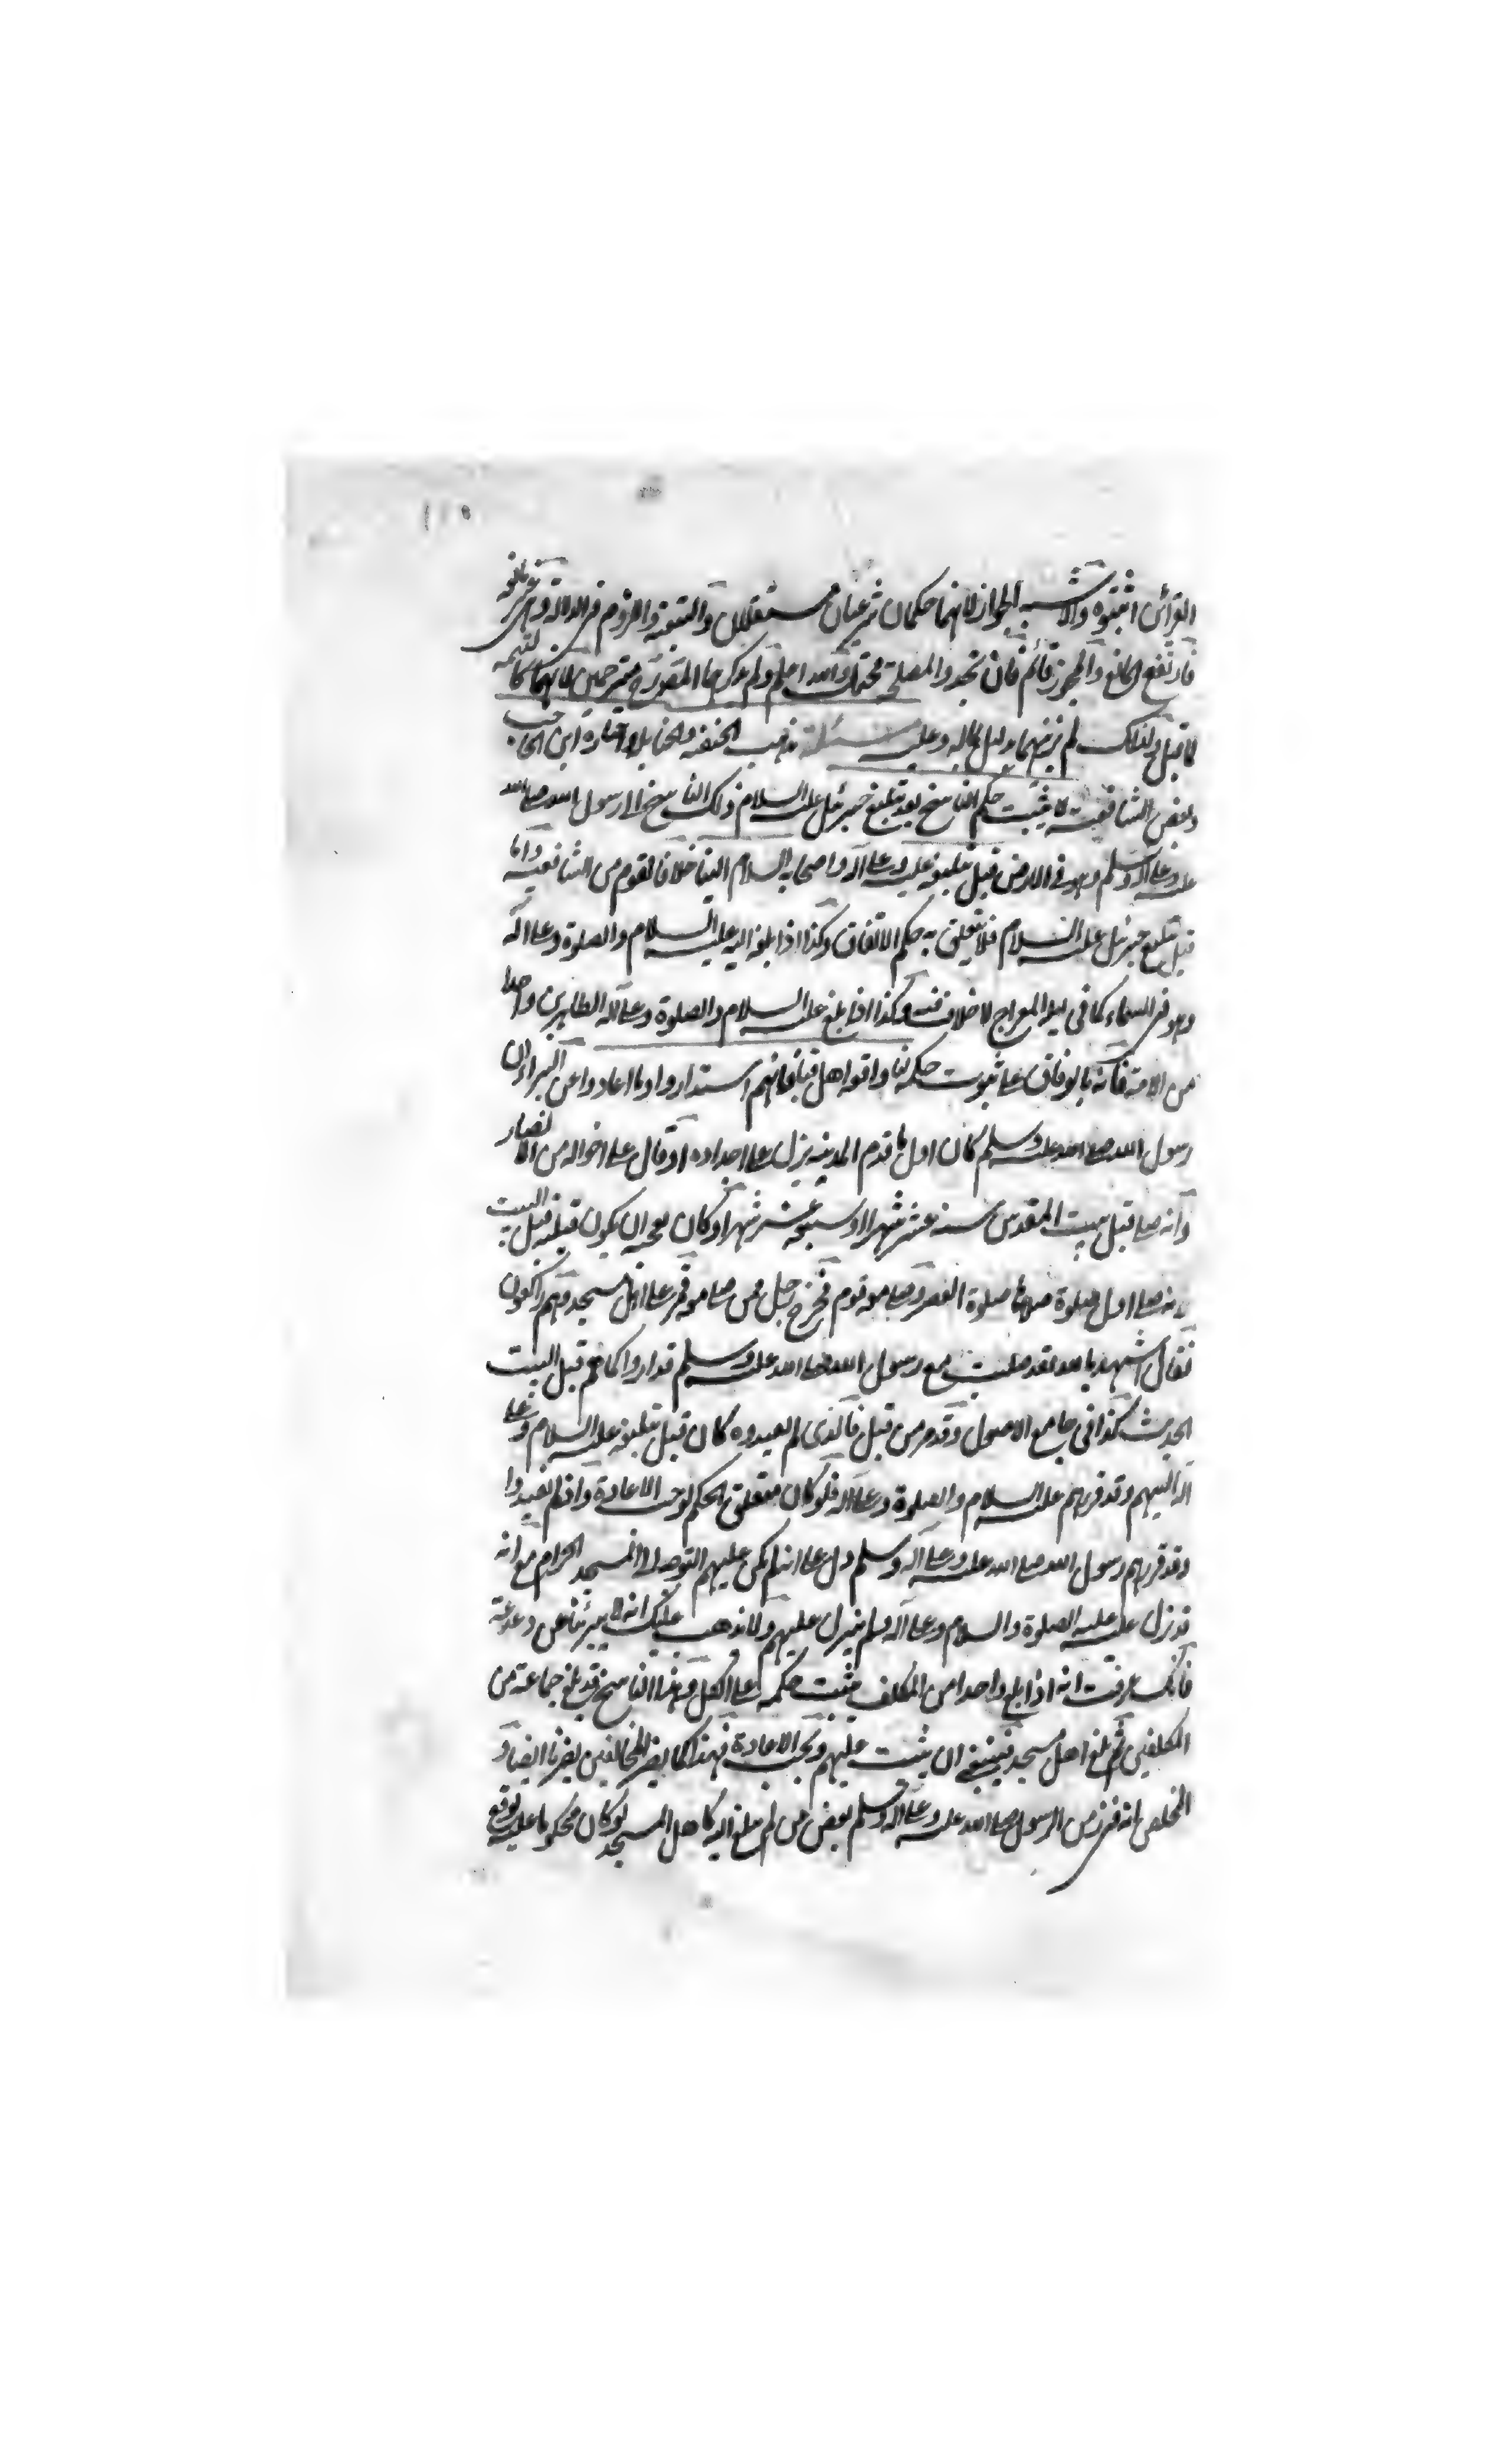 القرائن اثبتوه والاشبه الجواز لانهما حكمان شرعيان مستقلان والتبعية واللزوم في الدلالة وهى غير مانعه
فارتفع المانع والمجوز قائم فان تجدد المصلحة محتمل والله اعلم ولم يذكرها
كما قيل ولذلك لم نزيفهما دليل مسئلة مذهب الحنفية والحنابلة واختاره ابن الحاجب
وبعض الشافعية لا يثبت حكم الناسخ بعد تبليغ جبرئيل عليه السلام ذلك الناسخ الى رسول الله صلى الله
عليه وعلى آله وسلم وهو في الارض قبل تبليغه عليه وعلى آله واصحابه السلام الينا خلافا لقوم من الشافعية واما
قبل تبليغ جبرئيل عليه السلام فلا يتعلق به حكم الاتفاق وكذا اذا بلغ اليه عليه السلام والصلوة وعلى آله
وهو في السماء كما في ليلة المعراج لا خلاف فيه وكذا اذا بلغ عليه السلام والصلوة وعلى آله الطاهرين واحدا
من الامة فانه بالوفاق على ثبوت حكمه لنا واقعة اهل قبا فانهم استداروا وما اعادوا عن البراء ان
رسول الله صلى الله عليه وسلم كان اول ما قدم المدينة نزل على اجداده او قال على اخواله من الانصار
وانه صلى قبل بيت المقدس ستة عشر شهرا او سبعة عشر شهرا وكان يعجبه ان يكون قبلته قبل البيت
وانه صلى اول صلوة صلاها صلوة العصر وصلى معه قوم فخرج رجل ممن صلى معه فمر على اهل مسجد وهم راكعون
فقال اشهد بالله لقد صليت مع رسول الله صلى الله عليه وسلم فداروا كما هم قبل البيت
الحديث كذا في جامع الاصول وقد مر من قبل فالذى لم يعيدوه كان قبل تبليغه عليه السلام وعلى
آله اليهم وقد قررهم عليه السلام والصلوة وعلى آله فلو كان متعلق الحكم لوجب الاعادة واذ لم يعيدوا
وقد قررهم رسول الله صلى الله عليه وعلى آله وسلم دل على انه لم يكن عليهم التوجه الى المسجد الحرام مع انه
قد نزل عليه عليه الصلوة والسلام وعلى آله وسلم عليهم ولا تذهب عليك انه لا
فانك عرفت انه اذا بلغ واحدا من المكلف يثبت حكمه على الكل وهذا الناسخ قد بلغ جماعة من
المكلفين ثم بلغ اهل مسجد فينبغي ان يثبت عليهم ويجب الاعادة فهذا كما يضر المخالفين يضرنا ايضا و
المخلص انه في زمن الرسول صلى الله عليه وعلى آله وسلم بعض من لم يبلغ اليه كاهل المسجد لو كان محكوما عليه لوقع